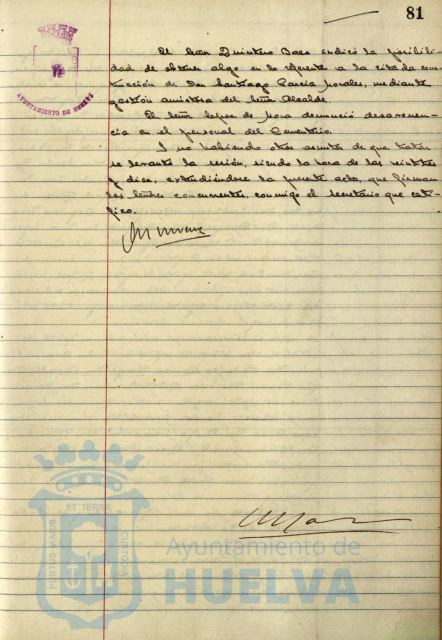 81
AYUNTAMIENTO DE HUELVA
El Señor Quintero Baez indicó la posibili-
dad de obtener algo en lo referente a la citada cons-
trucción de Don Santiago García Morales, mediante
gestión amistosa del Señor Alcalde.
El Señor López de Mora denunció desavenen-
cia en el personal del Cementerio.
Y no habiendo otros asuntos de que tratar
se levantó la sesión, siendo la hora de las veintitres
y diez, extendiéndose la presente acta, que firman
los Señores concurrentes, conmigo el Secretario que certi-
fico.
PORTUS MARIS ET TERRAE CUSTODIA
Ayuntamiento de
HUELVA